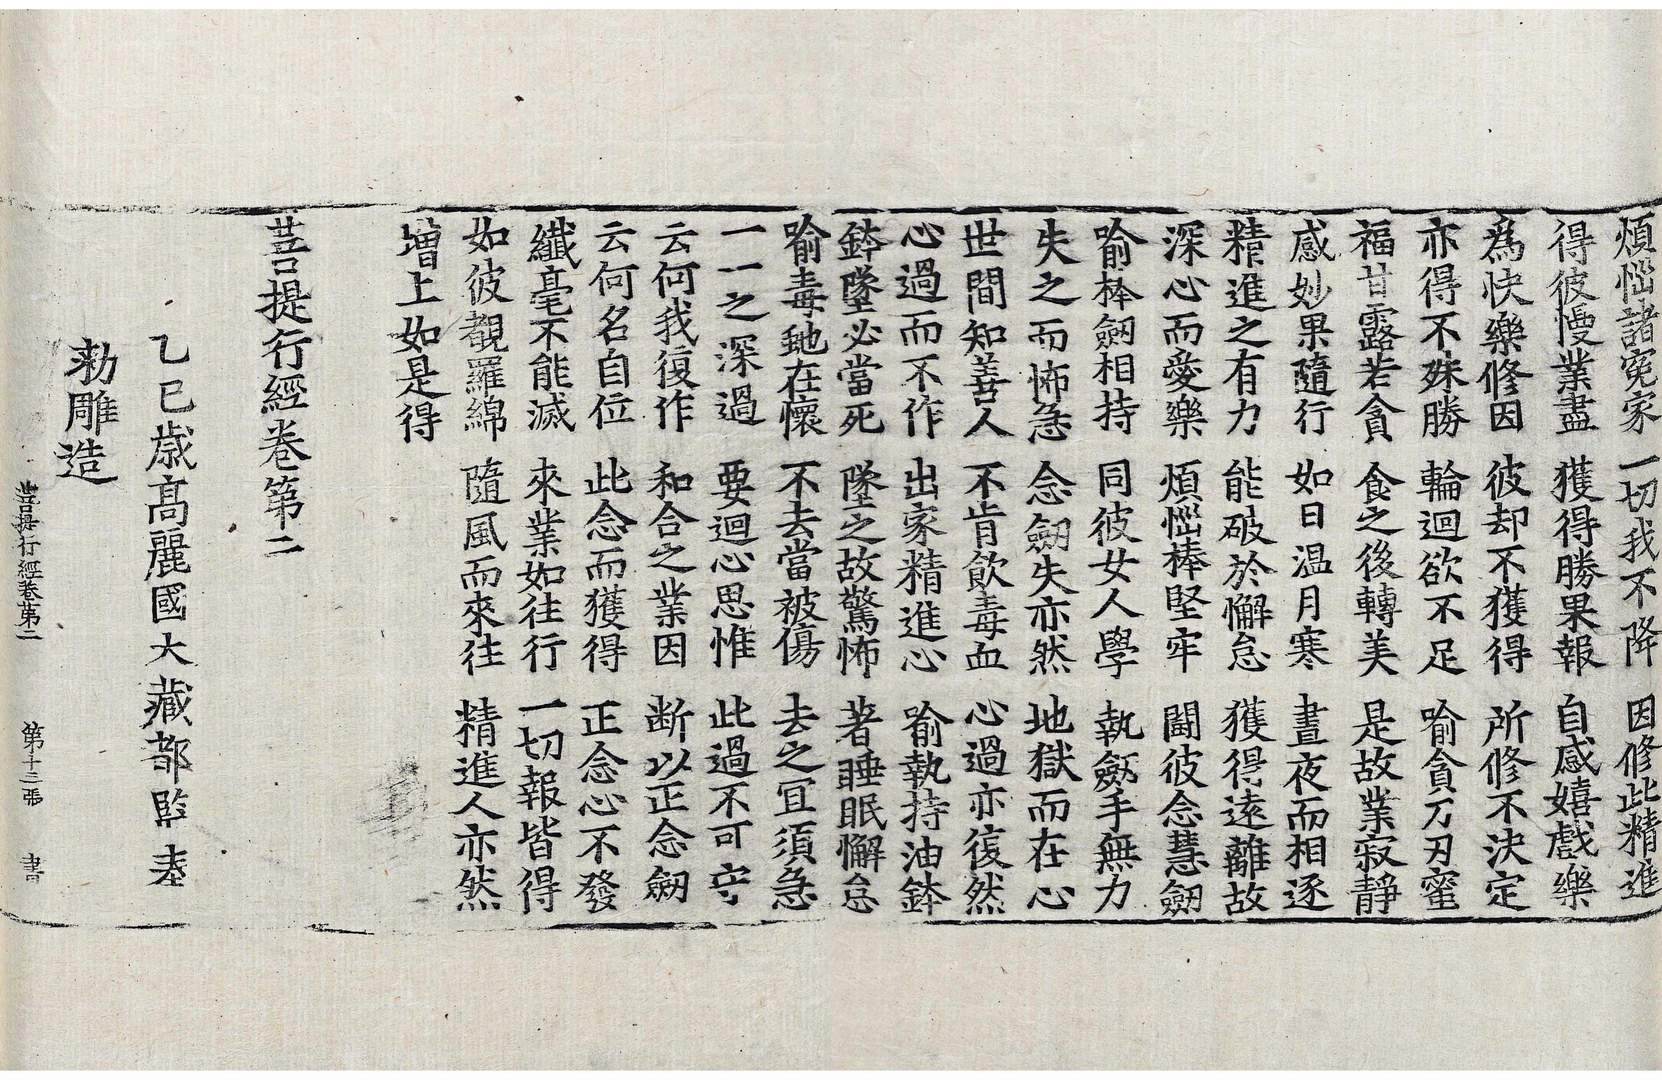 煩惱諸寃家 一切我不降 因修此精進
得彼慢業盡 獲得勝果報 自感嬉戲樂
為快樂修因 彼却不獲得 所修不決定
亦得不殊勝 輪迴欲不足 喻貪刀刃蜜
福甘露若貪 食之後轉美 是故業寂靜
感妙果隨行 如日温月寒 晝夜而相逐
精進之有力 能破於懈怠 獲得遠離故
深心而愛樂 煩惱棒堅牢 鬪彼念慧劒
喻棒劒相持 同彼女人學 執劒手無力
失之而怖急 念劒失亦然 地獄而在心
世間知善人 不肯飲毒血 心過亦復然
心過而不作 出家精進心 喻執持油鉢
鉢墜必當死 墜之故驚怖 著睡眠懈怠
喻毒虵在懷 不去當被傷 去之冝須急
一一之深過 要迴心思惟 此過不可守
云何我復作 和合之業因 断以正念劒
云何名自位 此念而獲得 正念心不發
纖毫不能滅 來業如往行 一切報皆得
如彼覩羅綿 隨風而來往 精進人亦然
增上如是得
菩提行經卷第二
乙巳歲高麗國大藏都監奉
勑雕造
菩提行經卷第二 第十三張 書